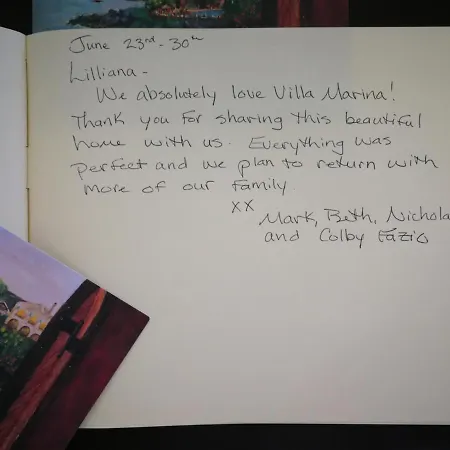 June 23rd - 30th
Lilliana -
We absolutely love Villa Marina!
Thank you for sharing this beautiful
home with us. Everything was
perfect and we plan to return with
more of our family
xx
Mark, Beth, Nichola
and Colby Fazio